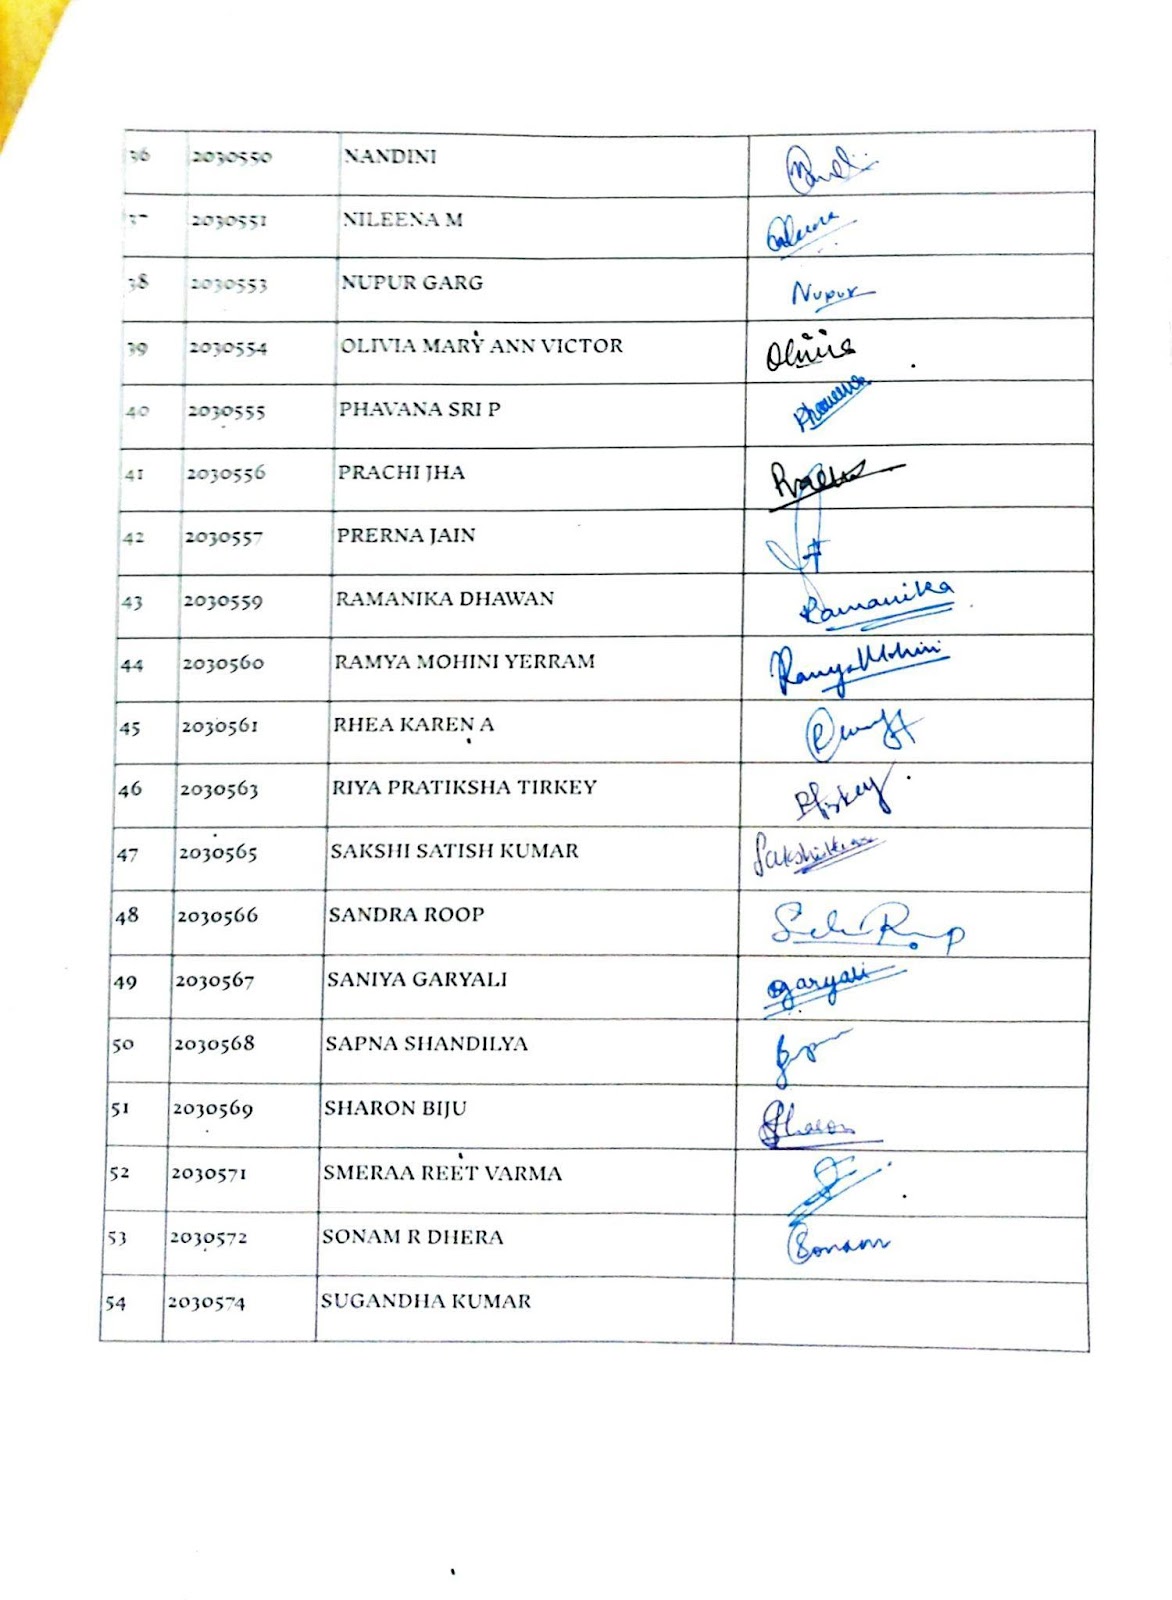 36 2030550 NANDINI
37 2030551 NILEENA M
38 2030553 NUPUR GARG Nupur
39 2030554 OLIVIA MARY ANN VICTOR Olivia
40 2030555 PHAVANA SRI P
41 2030556 PRACHI JHA
42 2030557 PRERNA JAIN
43 2030559 RAMANIKA DHAWAN Ramanika
44 2030560 RAMYA MOHINI YERRAM RamyaMohini
45 2030561 RHEA KAREN A
46 2030563 RIYA PRATIKSHA TIRKEY
47 2030565 SAKSHI SATISH KUMAR
48 2030566 SANDRA ROOP
49 2030567 SANIYA GARYALI garyali
50 2030568 SAPNA SHANDILYA
51 2030569 SHARON BIJU Sharon
52 2030571 SMERAA REET VARMA
53 2030572 SONAM R DHERA Sonam
54 2030574 SUGANDHA KUMAR